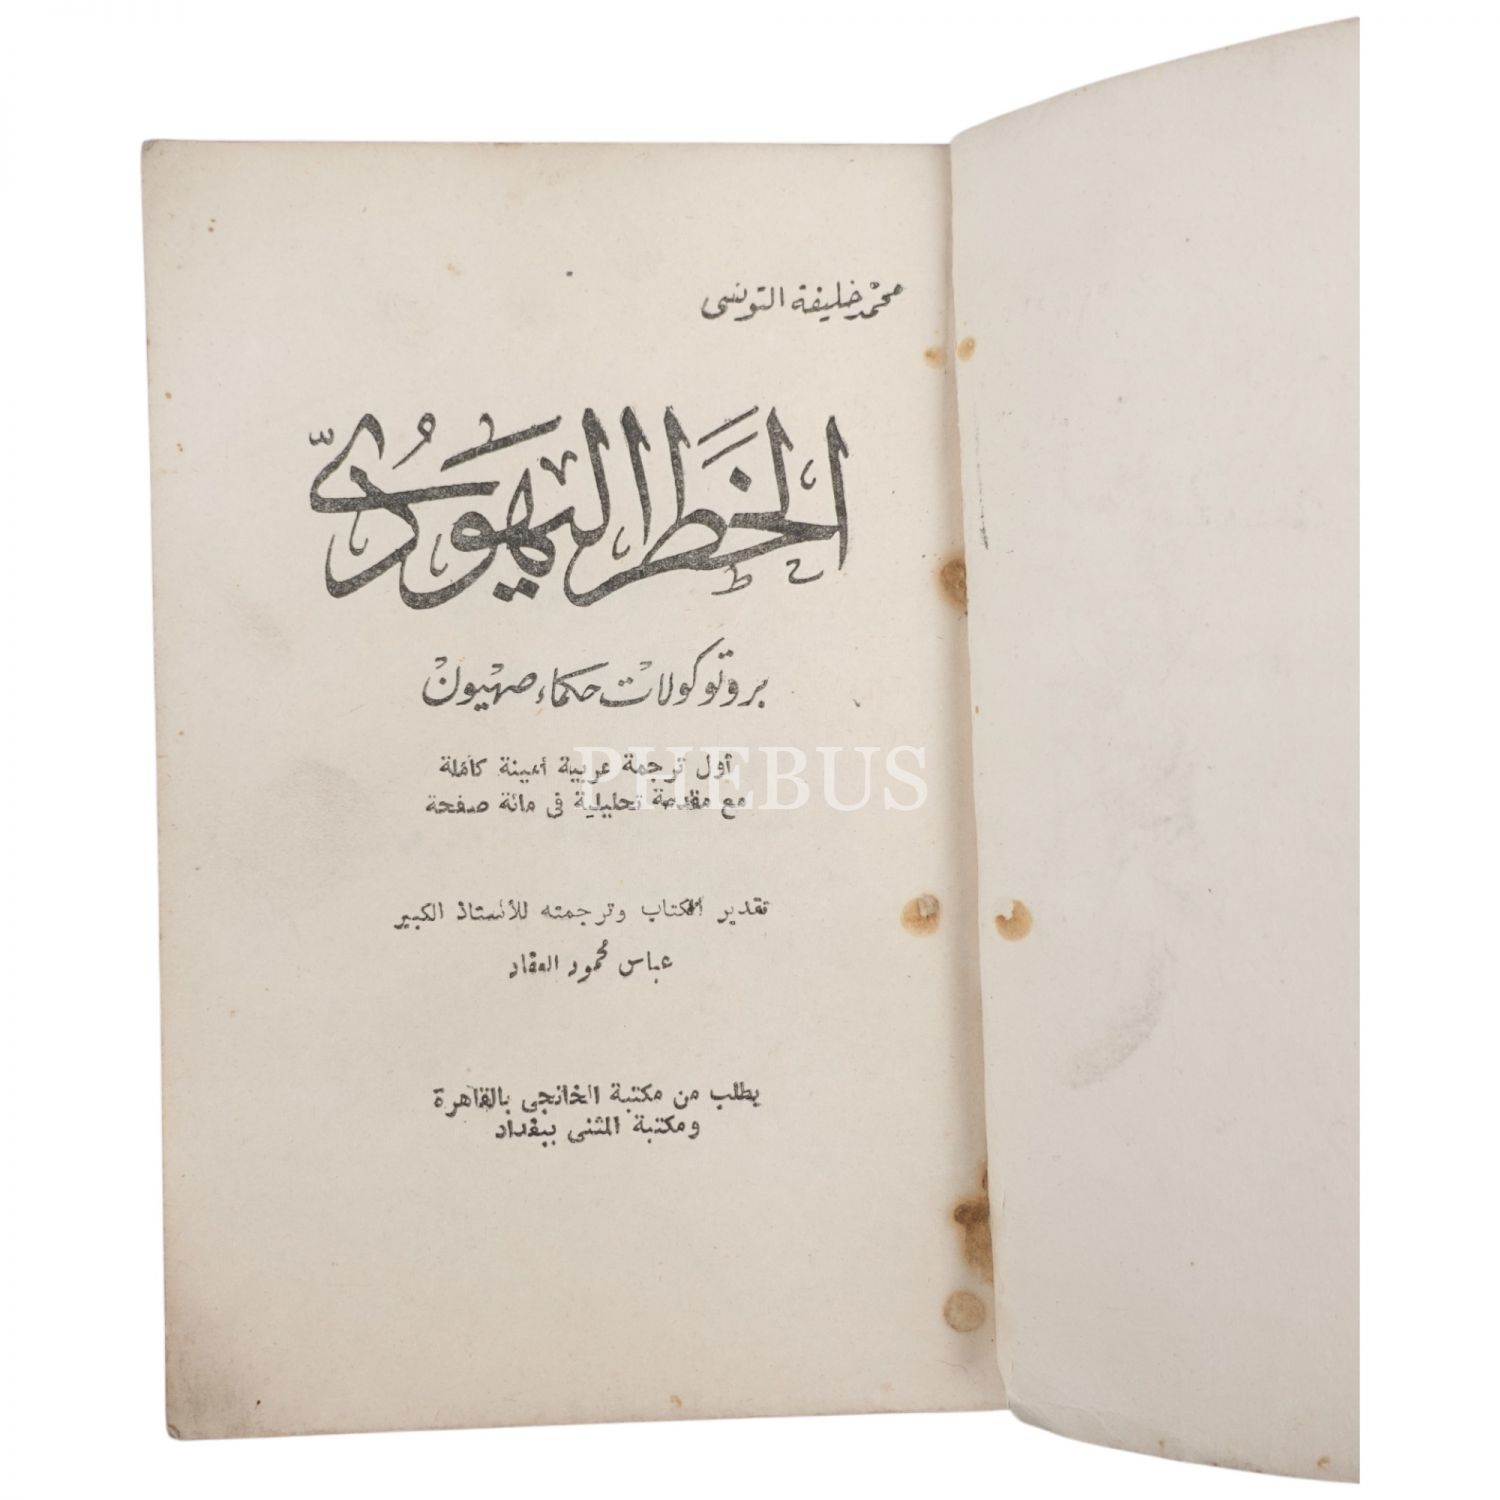 محمد خليفة التونسى
الخَطَر اليَهُودىّ
بروتوكولات حكماء صهيون
أول ترجمة عربية أمينة كاملة
مع مقدمة تحليلية فى مائة صفحة
PHEBUS
تقدير الكتاب وترجمته للأستاذ الكبير
عباس محمود العقاد
يطلب من مكتبة الخانجى بالقاهرة
ومكتبة المثنى ببغداد